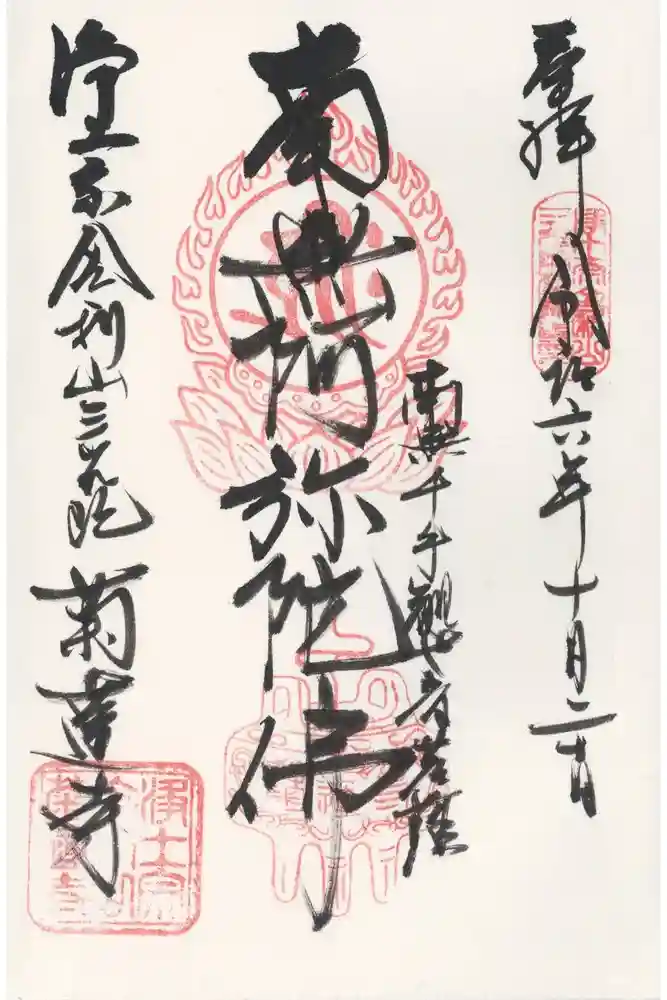 奉拝 令和六年十月二十日
南無千手観音菩薩
南無阿弥陀佛
浄土宗 舎利山三光院 菊蓮寺
浄土宗